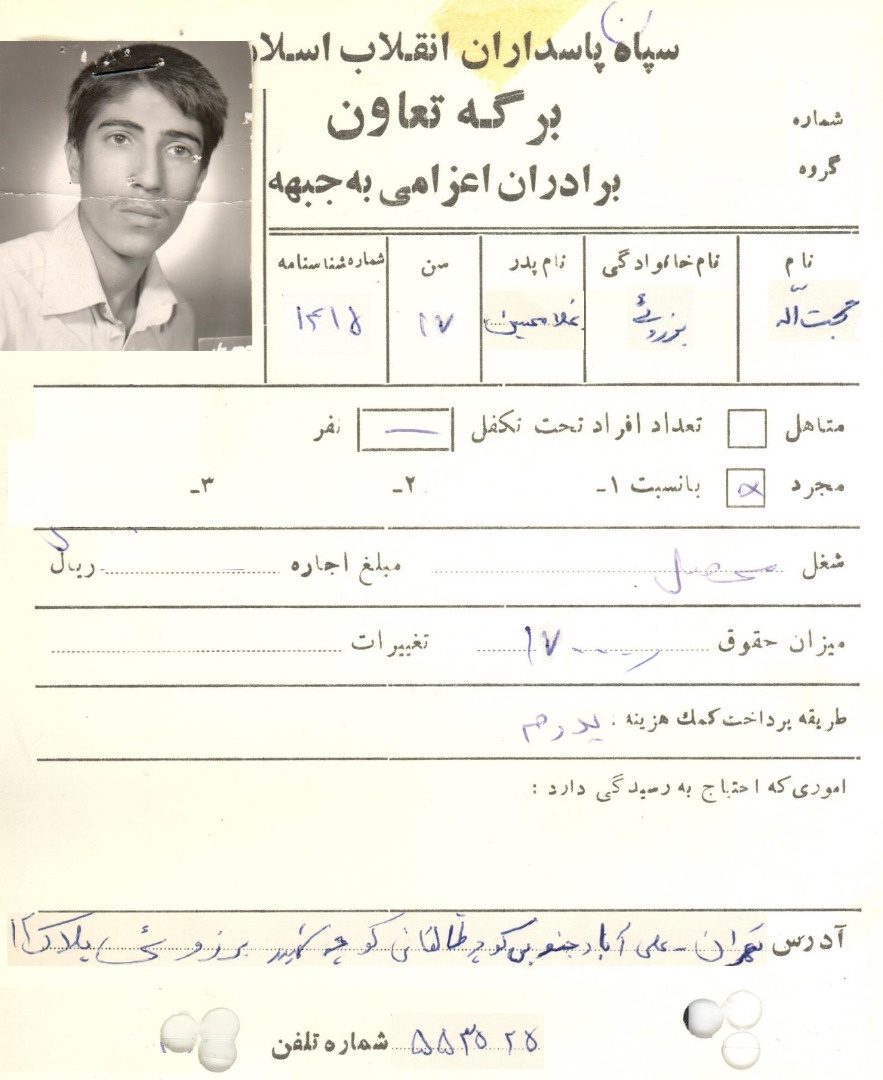 سپاه پاسداران انقلاب اسلا
برگه تعاون
برادران اعزامی به جبهه
شماره
گروه
نام نام خانوادگی نام پدر سن شماره شناسنامه
حجت اله برزوئی غلامحسین ۱۷ ۱۴۱۵
متاهل تعداد افراد تحت تکفل — نفر
مجرد بانسبت ۱- ۲- ۳-
شغل محصل مبلغ اجاره ریال
میزان حقوق ۱۷ تغییرات
طریقه پرداخت کمک هزینه : پدرم
اموری که احتیاج به رسیدگی دارد :
آدرس تهران - علی آباد جنوبی کوچه طالقانی کوچه شهید برزوئی پلاک ۱۱
شماره تلفن ۵۵۳۵۲۵